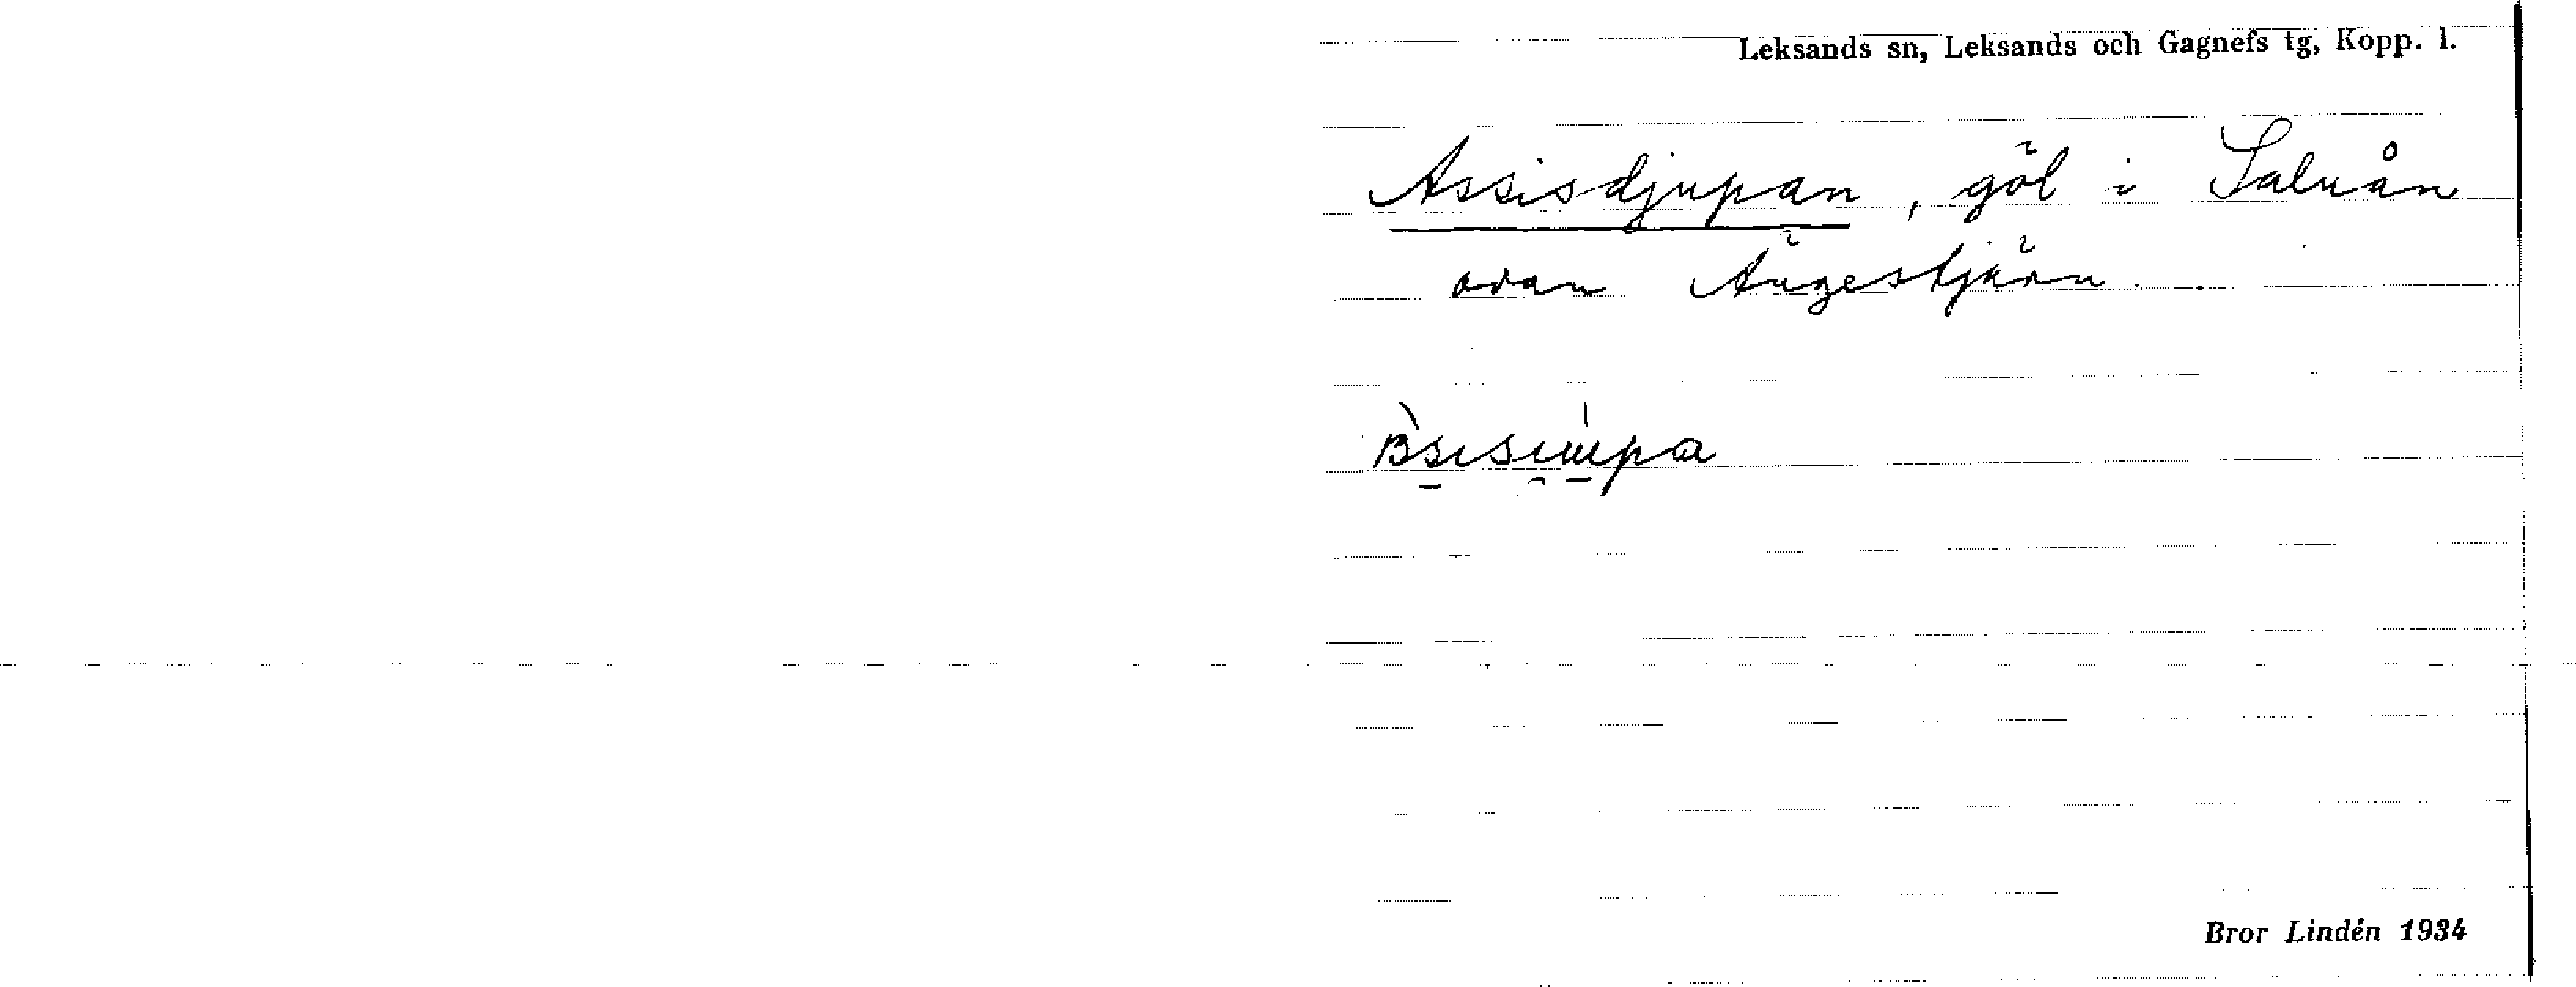 Leksands sn, Leksands och Gagnefs tg, Kopp. l.
Assisdjupan, göl i Saluån
ovan Ängestjärn.
Bror Lindén 1934